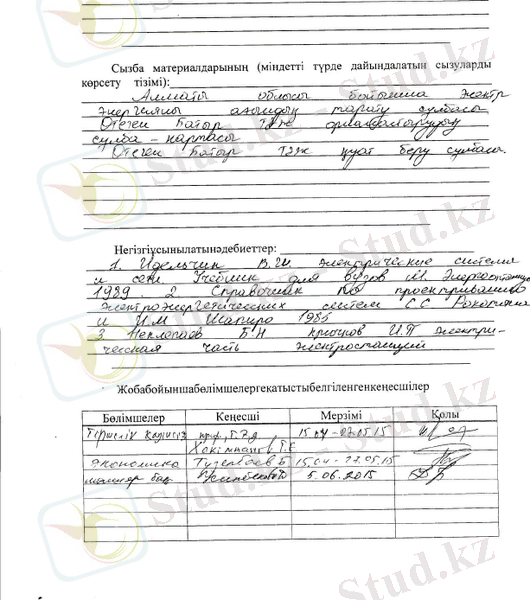 Stud.kz
Сызба материалдарының (міндетті түрде дайындалатын сызуларды
көрсету тізімі):
Алматы облысы бойынша электр
энергияны ағындық тарату сұлбасы
Отеген Батыр орналастырудың
сұлба - картасы
Отеген Батыр қуат беру сұлбасы.
Stud.kz
Негізгіұсынылатынәдебиеттер:
1. Идельчик В.И. Электрические системы
и сети Учебник для вузов М. Энергоатомиздат
1989. 2 Справочник по проектированию
электроэнергетических систем С С Рокотяна
и И.М Шапиро 1985
3 Неклепаев Б.Н Крючков И.П Электри-
ческая часть электростанций
Stud.kz
Жобабойыншабөлімшелергекатыстыбелгіленгенкеңесшілер
Бөлімшелер Кеңесші Мерзімі Қолы
Тіршілік 15.04 - 22.05.15
Экономика Б. 15.04 - 22.05.15
5.06.2015
Stud.kz
Stud.kz